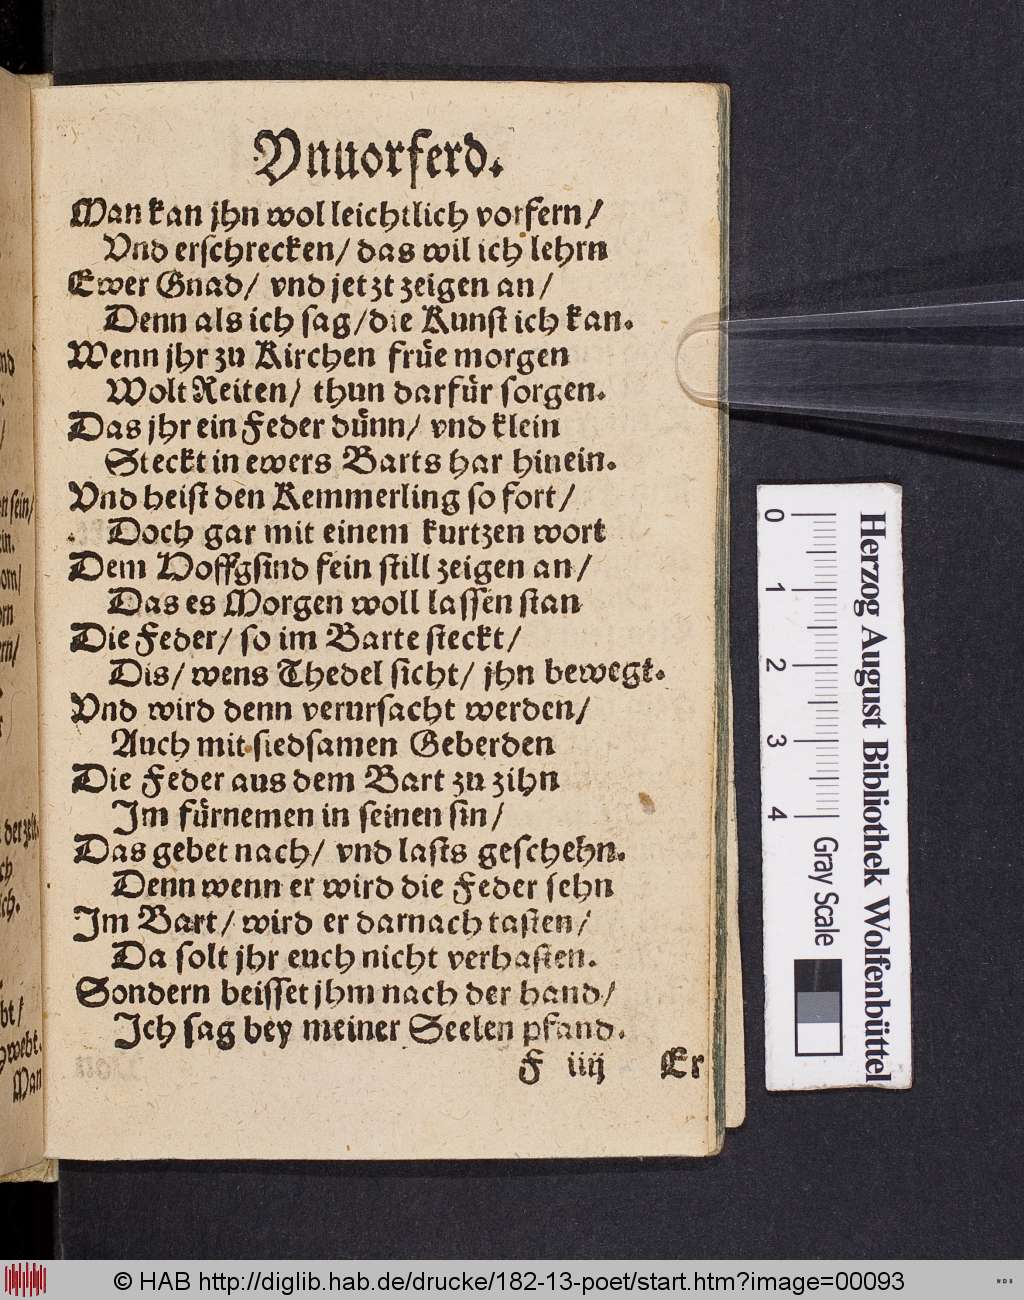 Vnuorferd.
Man kan jhn wol leichtlich vorfern/
Vnd erschrecken/ das wil ich lehrn
Ewer Gnad/ vnd jetzt zeigen an/
Denn als ich sag/die Kunst ich kan.
Wenn jhr zu Kirchen früe morgen
Wolt Reiten/ thun darfür sorgen.
Das jhr ein Feder dünn/ vnd klein
Steckt in ewers Barts har hinein.
Vnd heist den Kemmerling so fort/
Doch gar mit einem kurtzen wort
Dem Hoffgsind fein still zeigen an/
Das es Morgen woll lassen stan
Die Feder/ so im Barte steckt/
Dis/ wens Thedel sicht/ jhn bewegt.
Vnd wird denn verursacht werden/
Auch mit siedsamen Geberden
Die Feder aus dem Bart zu zihn
Im fürnemen in seinen sin/
Das gebet nach/ vnd lasts geschehn.
Denn wenn er wird die Feder sehn
Im Bart/ wird er darnach tasten/
Da solt jhr euch nicht verhasten.
Sondern beisset jhm nach der hand/
Ich sag bey meiner Seelen pfand.
F iiij Er
nd
n sein/
in.
orn
der zeit
ch
ich.
bt/
webt.
Man
0 1 2 3 4 Gray Scale
Herzog August Bibliothek Wolfenbüttel
© HAB http://diglib.hab.de/drucke/182-13-poet/start.htm?image=00093